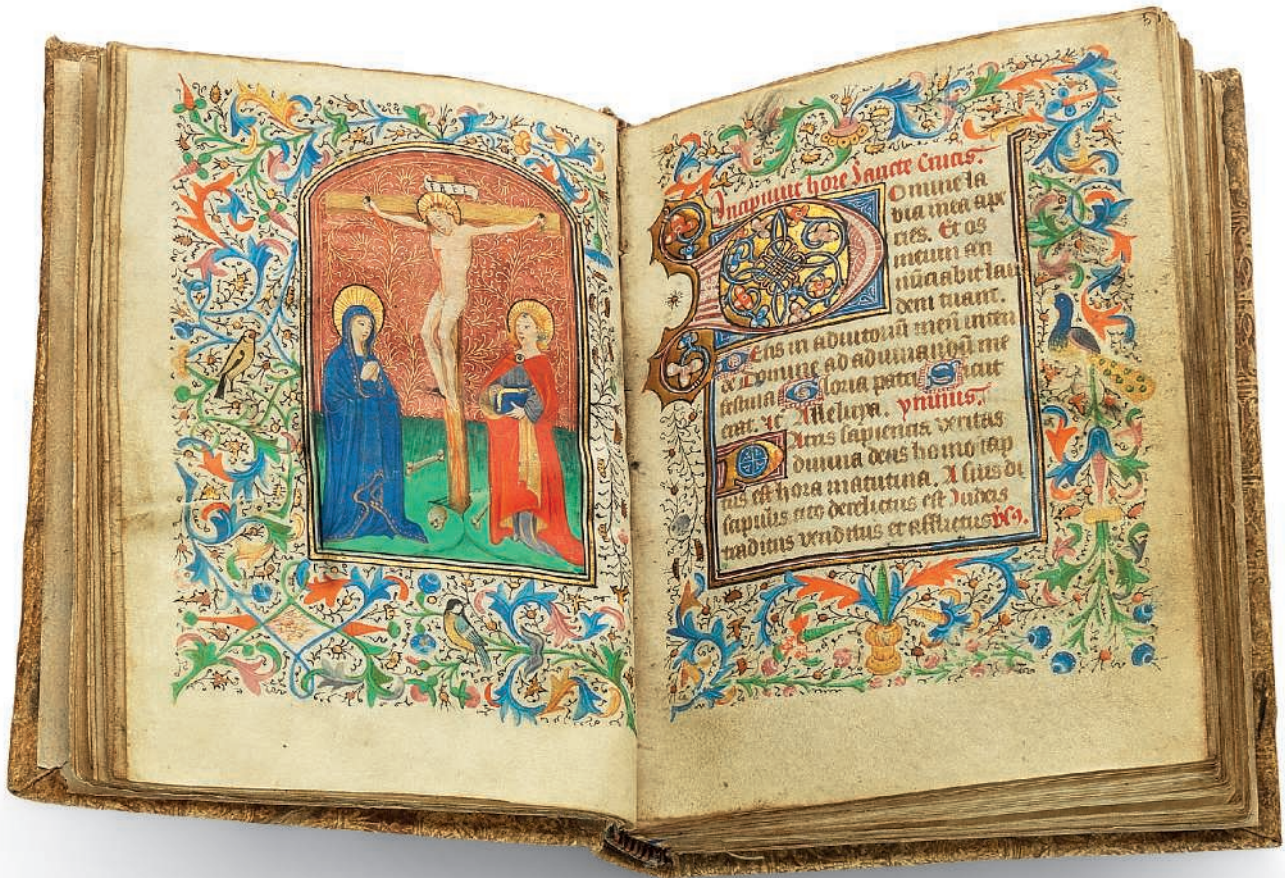 INRI
Incipiunt hore Sancte Crucis.
Domine la
bia mea ape
ries. Et os
meum an
nūciabit lau
dem tuam.
Deus in adiutoriū meū inten
de Domine ad adiuuandū me
festina Gloria patri Sicut
erat. ic Alleluya. ymnus.
Patris sapiencia veritas
diuina deus homo cap
tus est hora matutina. A suis di
scipulis cito derelictus est Iudeis
traditus venditus et afflictus